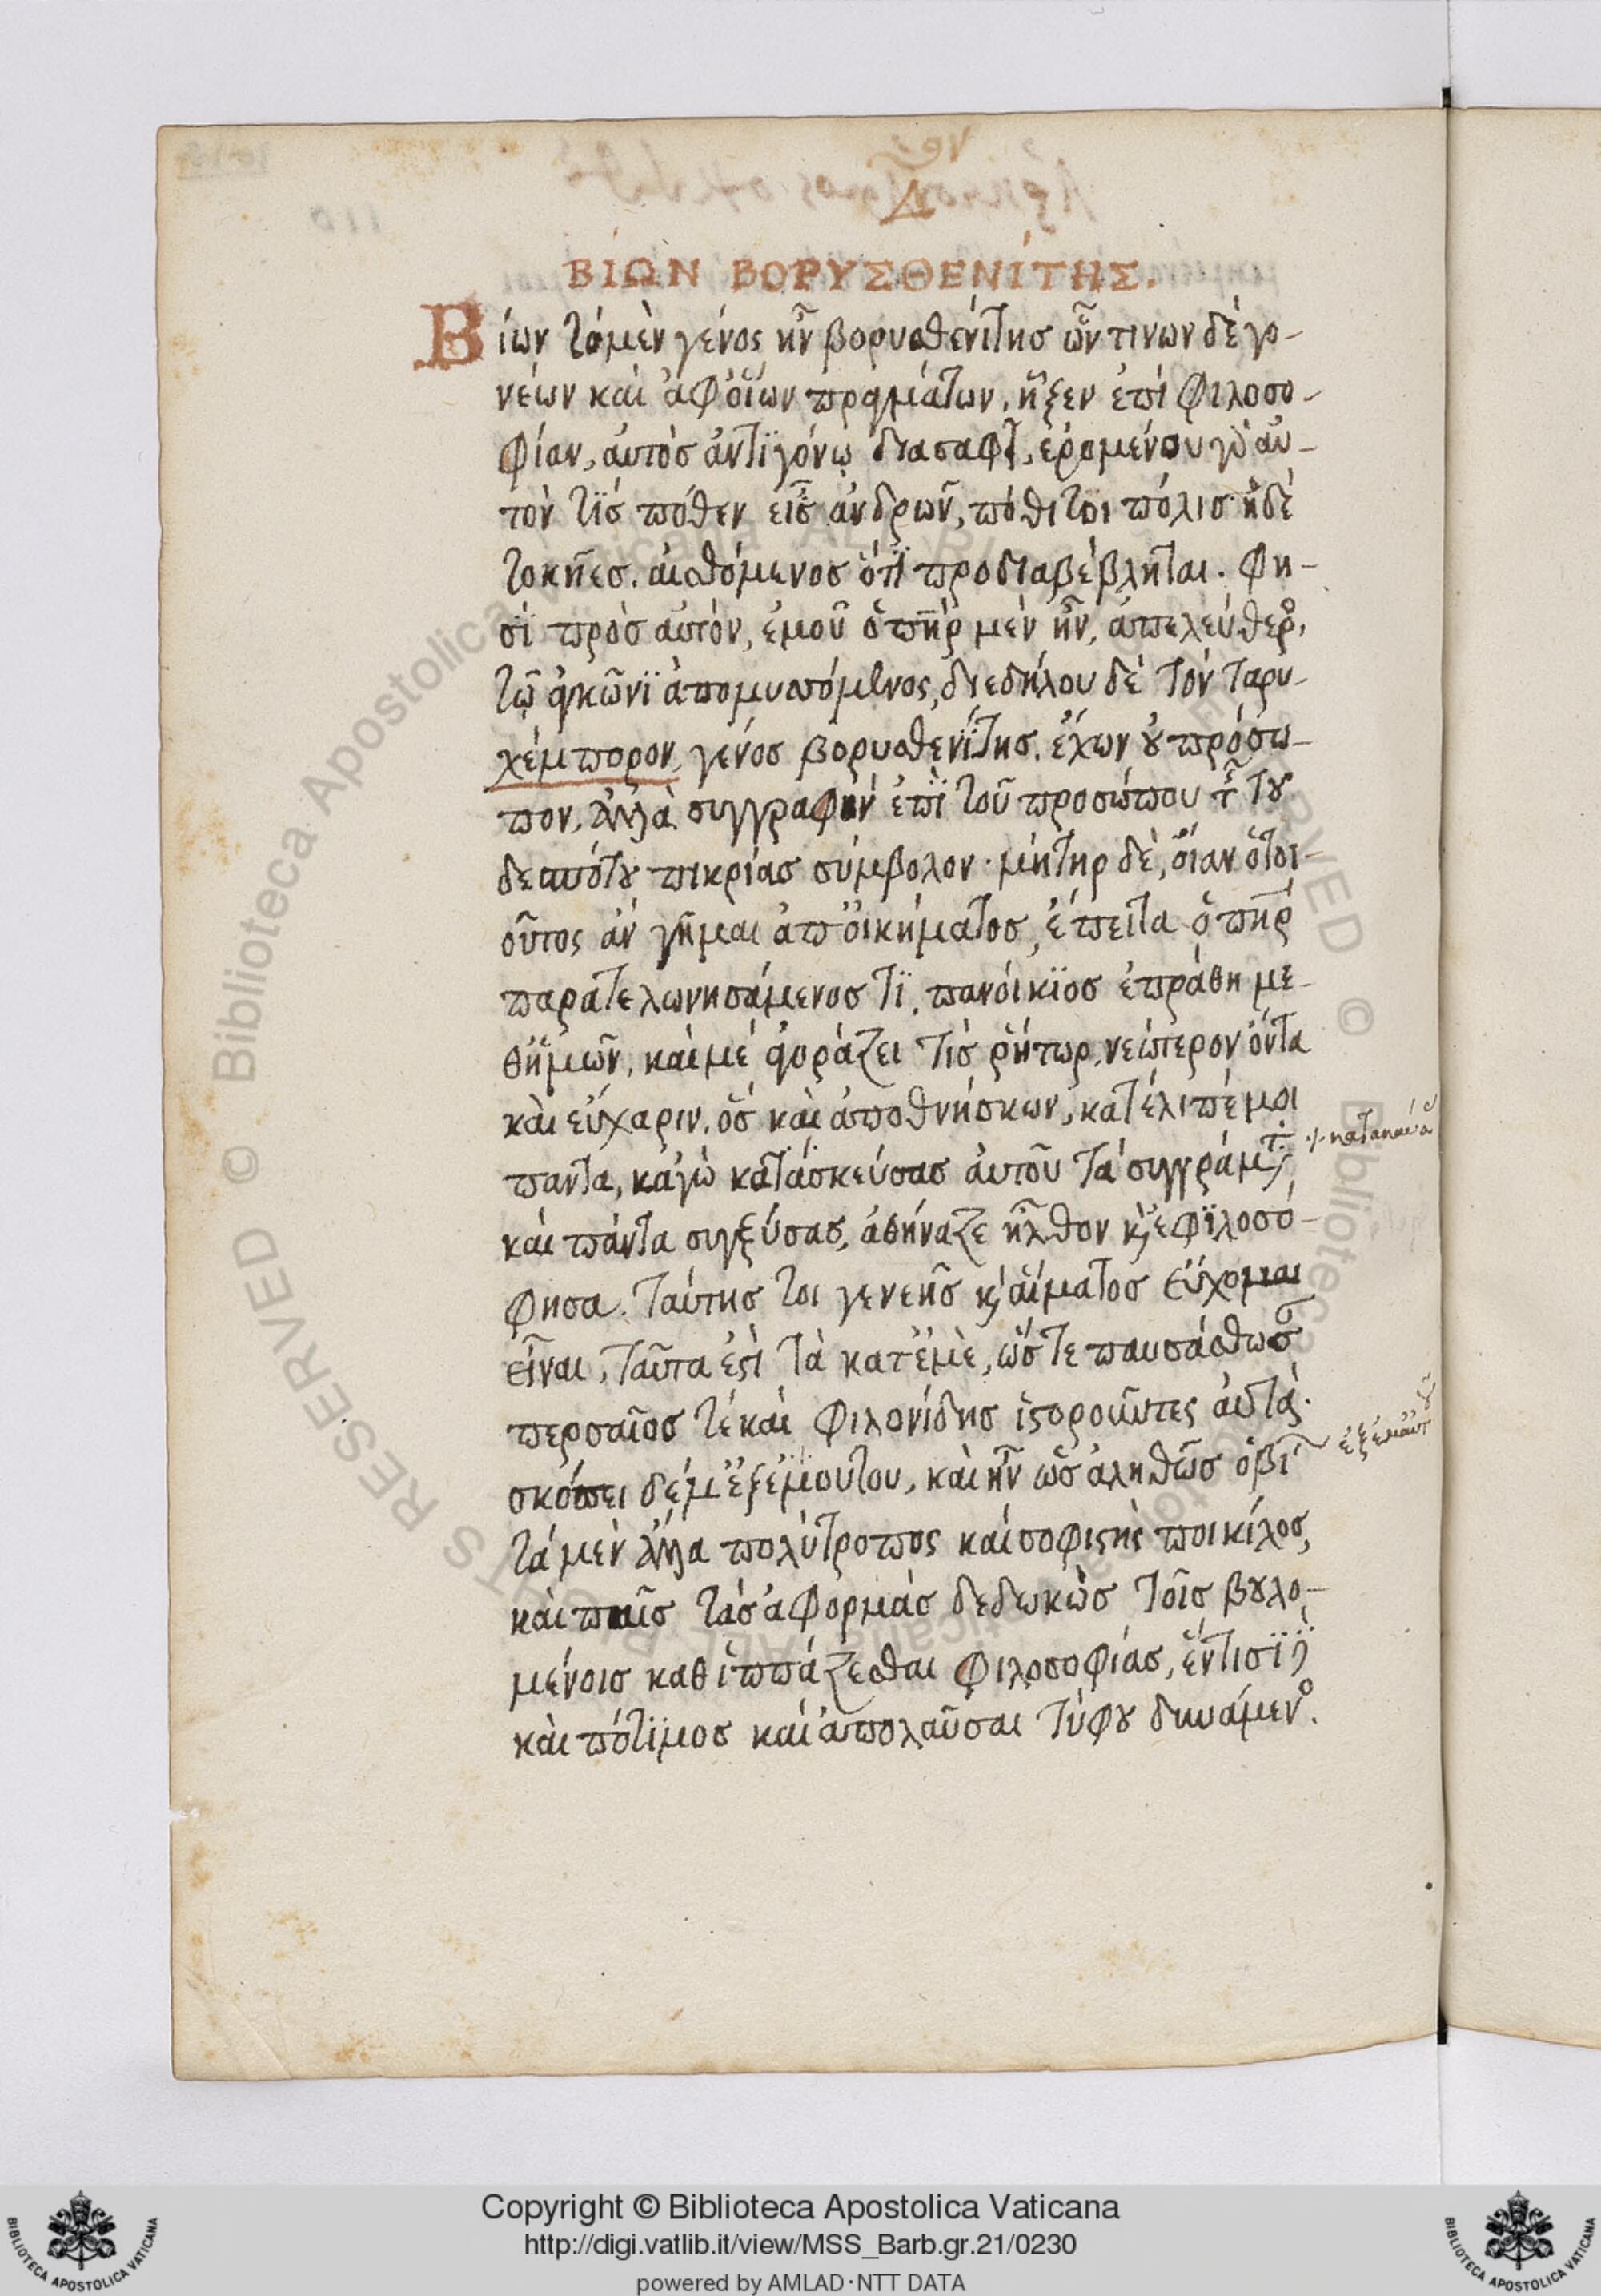 ΒΊΩΝ ΒΟΡΥΣΘΕΝΊΤΗΣ.
Βίων τὸ μὲν γένος ἦν βορυσθενίτης ὧν τινων δὲ γο-
νέων καὶ ἀφ' οἵων πραγμάτων, ἦξεν ἐπὶ φιλοσο-
φίαν, αὐτὸς ἀντιγόνῳ διασαφεῖ, ἐρομένου γὰρ αὐ-
τὸν τίς πόθεν εἶς ἀνδρῶν, πόθι τοι πόλις ἠδὲ
τοκῆες. αἰσθόμενος ὅτι προδιαβέβληται. φη-
σὶ πρὸς αὐτόν, ἐμοῦ ὁ πὴρ μὲν ἦν, ἀπελεύθερο,
τῷ ἀγκῶνι ἀπομυσσόμενος, διεδήλου δὲ τὸν ταρι-
χέμπορον, γένος βορυσθενίτης. ἔχων οὐ πρόσω-
πον, ἀλλὰ συγγραφὴν ἐπὶ τοῦ προσώπου τῆς τοῦ
δεσπότου πικρίας σύμβολον. μήτηρ δὲ, οἵαν ὁ τοι-
οῦτος ἂν γῆμαι ἀπ' οἰκήματος, ἔπειτα ὁ πὴρ
παρατελωνησάμενός τι, πανοίκιος ἐπράθη με-
θ' ἡμῶν, καί με ἀγοράζει τις ῥήτωρ, νεώτερον ὄντα
καὶ εὔχαριν. ὃς καὶ ἀποθνήσκων, κατέλιπέ μοι
παντα, κἀγὼ κατασκεύσας αὐτοῦ τὰ συγγράμτ
κατακαύσ
καὶ πάντα συγξύσας, ἀθήναζε ἦλθον κ' ἐφιλοσό-
φησα. ταύτης τοι γενεῆς κ' αἵματος εὔχομαι
εἶναι, ταῦτα ἐστὶ τὰ κατ' ἐμὲ, ὥστε παυσάσθωσ
περσαῖός τε καὶ φιλονίδης ἱστοροῦντες αὐτά.
σκόπει δέ μ' ἐξ ἐμούτου, καὶ ἦν ὡς ἀληθῶς ὁ βι
ἐξ ἐμαυτοῦ
τὰ μὲν ἄλλα πολύτροπος καὶ σοφιστὴς ποικίλος,
καὶ πλεῖς τὰς ἀφορμὰς δεδωκὼς τοῖς βουλο-
μένοις καθιππάζεσθαι φιλοσοφίας, ἔν τισι
καὶ πότιμος καὶ ἀπολαῦσαι τύφου δυνάμενο.
Copyright © Biblioteca Apostolica Vaticana
http://digi.vatlib.it/view/MSS_Barb.gr.21/0230
powered by AMLAD·NTT DATA